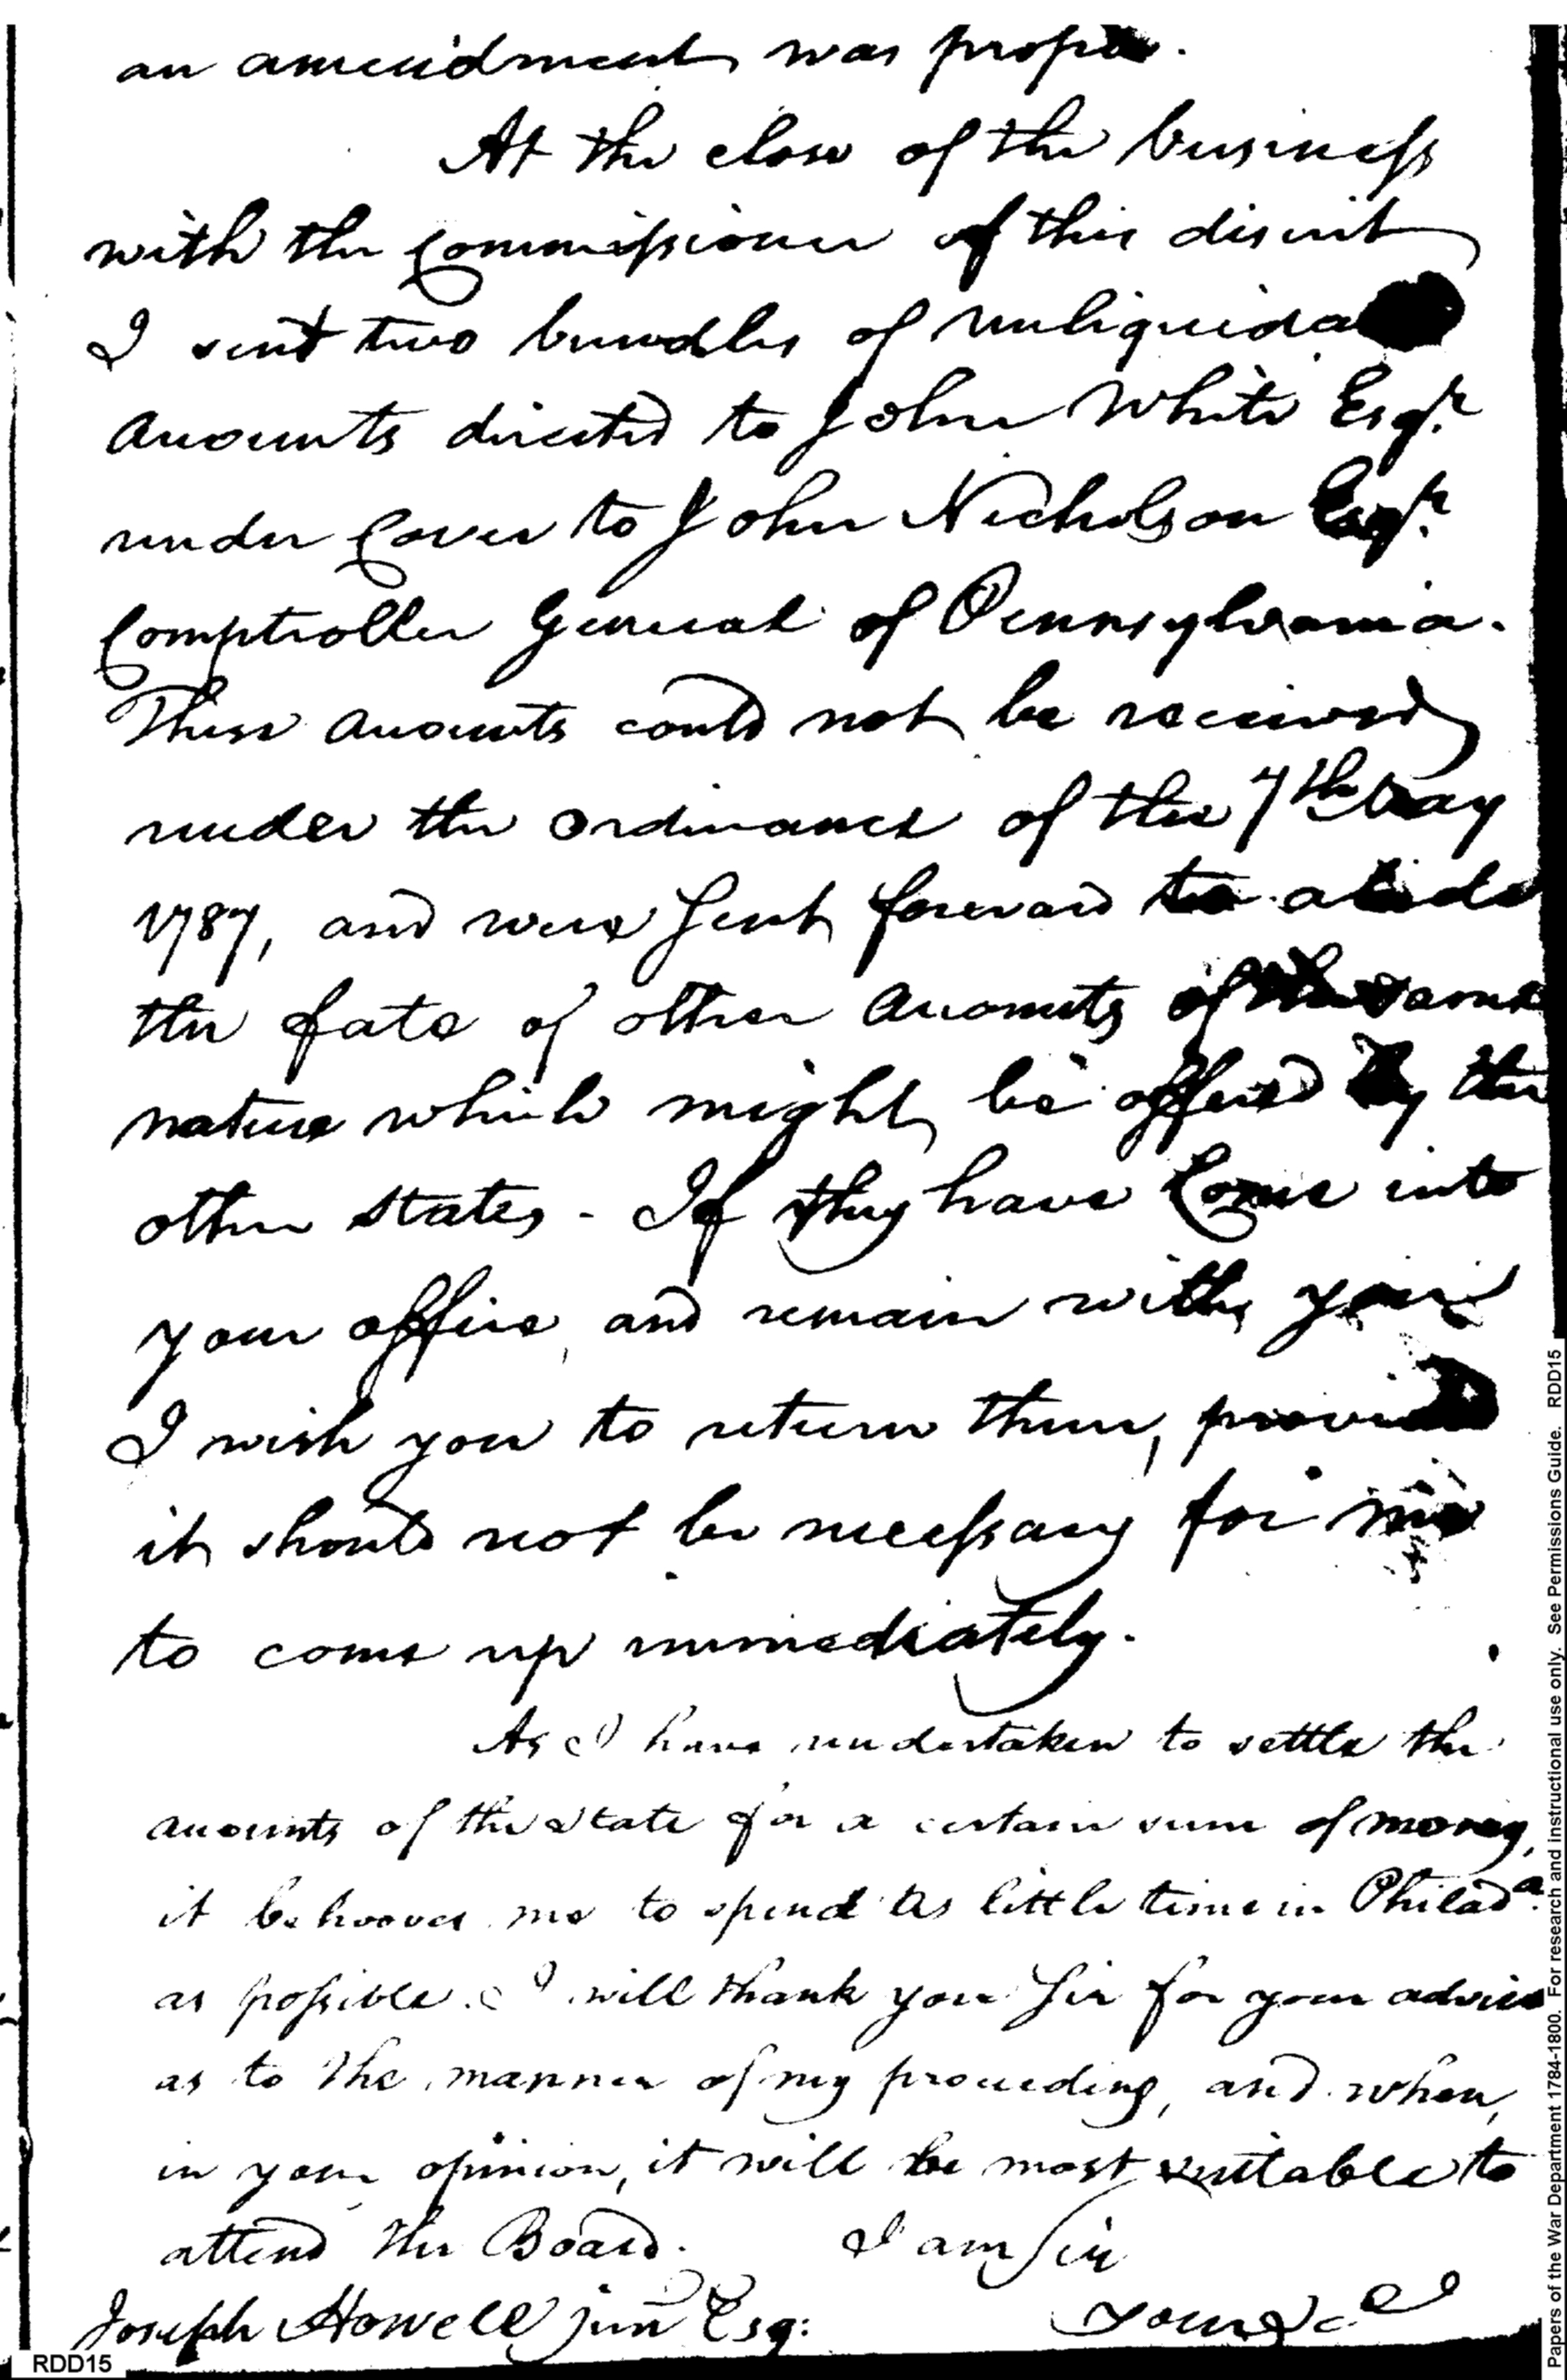 an amendment was proper.
At the close of the business
with the Commissioner of this district
I sent two bundles of unliquidated
accounts directed to John White Esqr.
under Cover to John Nicholson Esqr.
Comptroller General of Pennsylvania.
These accounts could not be received
under the Ordinance of the 7th May
1787, and were sent forward to abide
the fate of other accounts of the same
nature which might be offered by the
other States - If they have Come into
your office, and remain with you
I wish you to return them, provided
it should not be necessary for me
to come up immediately.
As I have undertaken to settle the
accounts of the State for a certain sum of money,
it behooves me to spend as little time in Philada.
as possible. I will thank you Sir for your advice
as to the manner of my proceeding, and when,
in your opinion, it will be most suitable to
attend the Board. I am Sir
Joseph Howell junr Esq: Yours &c
RDD15
Papers of the War Department 1784-1800. For research and instructional use only. See Permissions Guide. RDD15